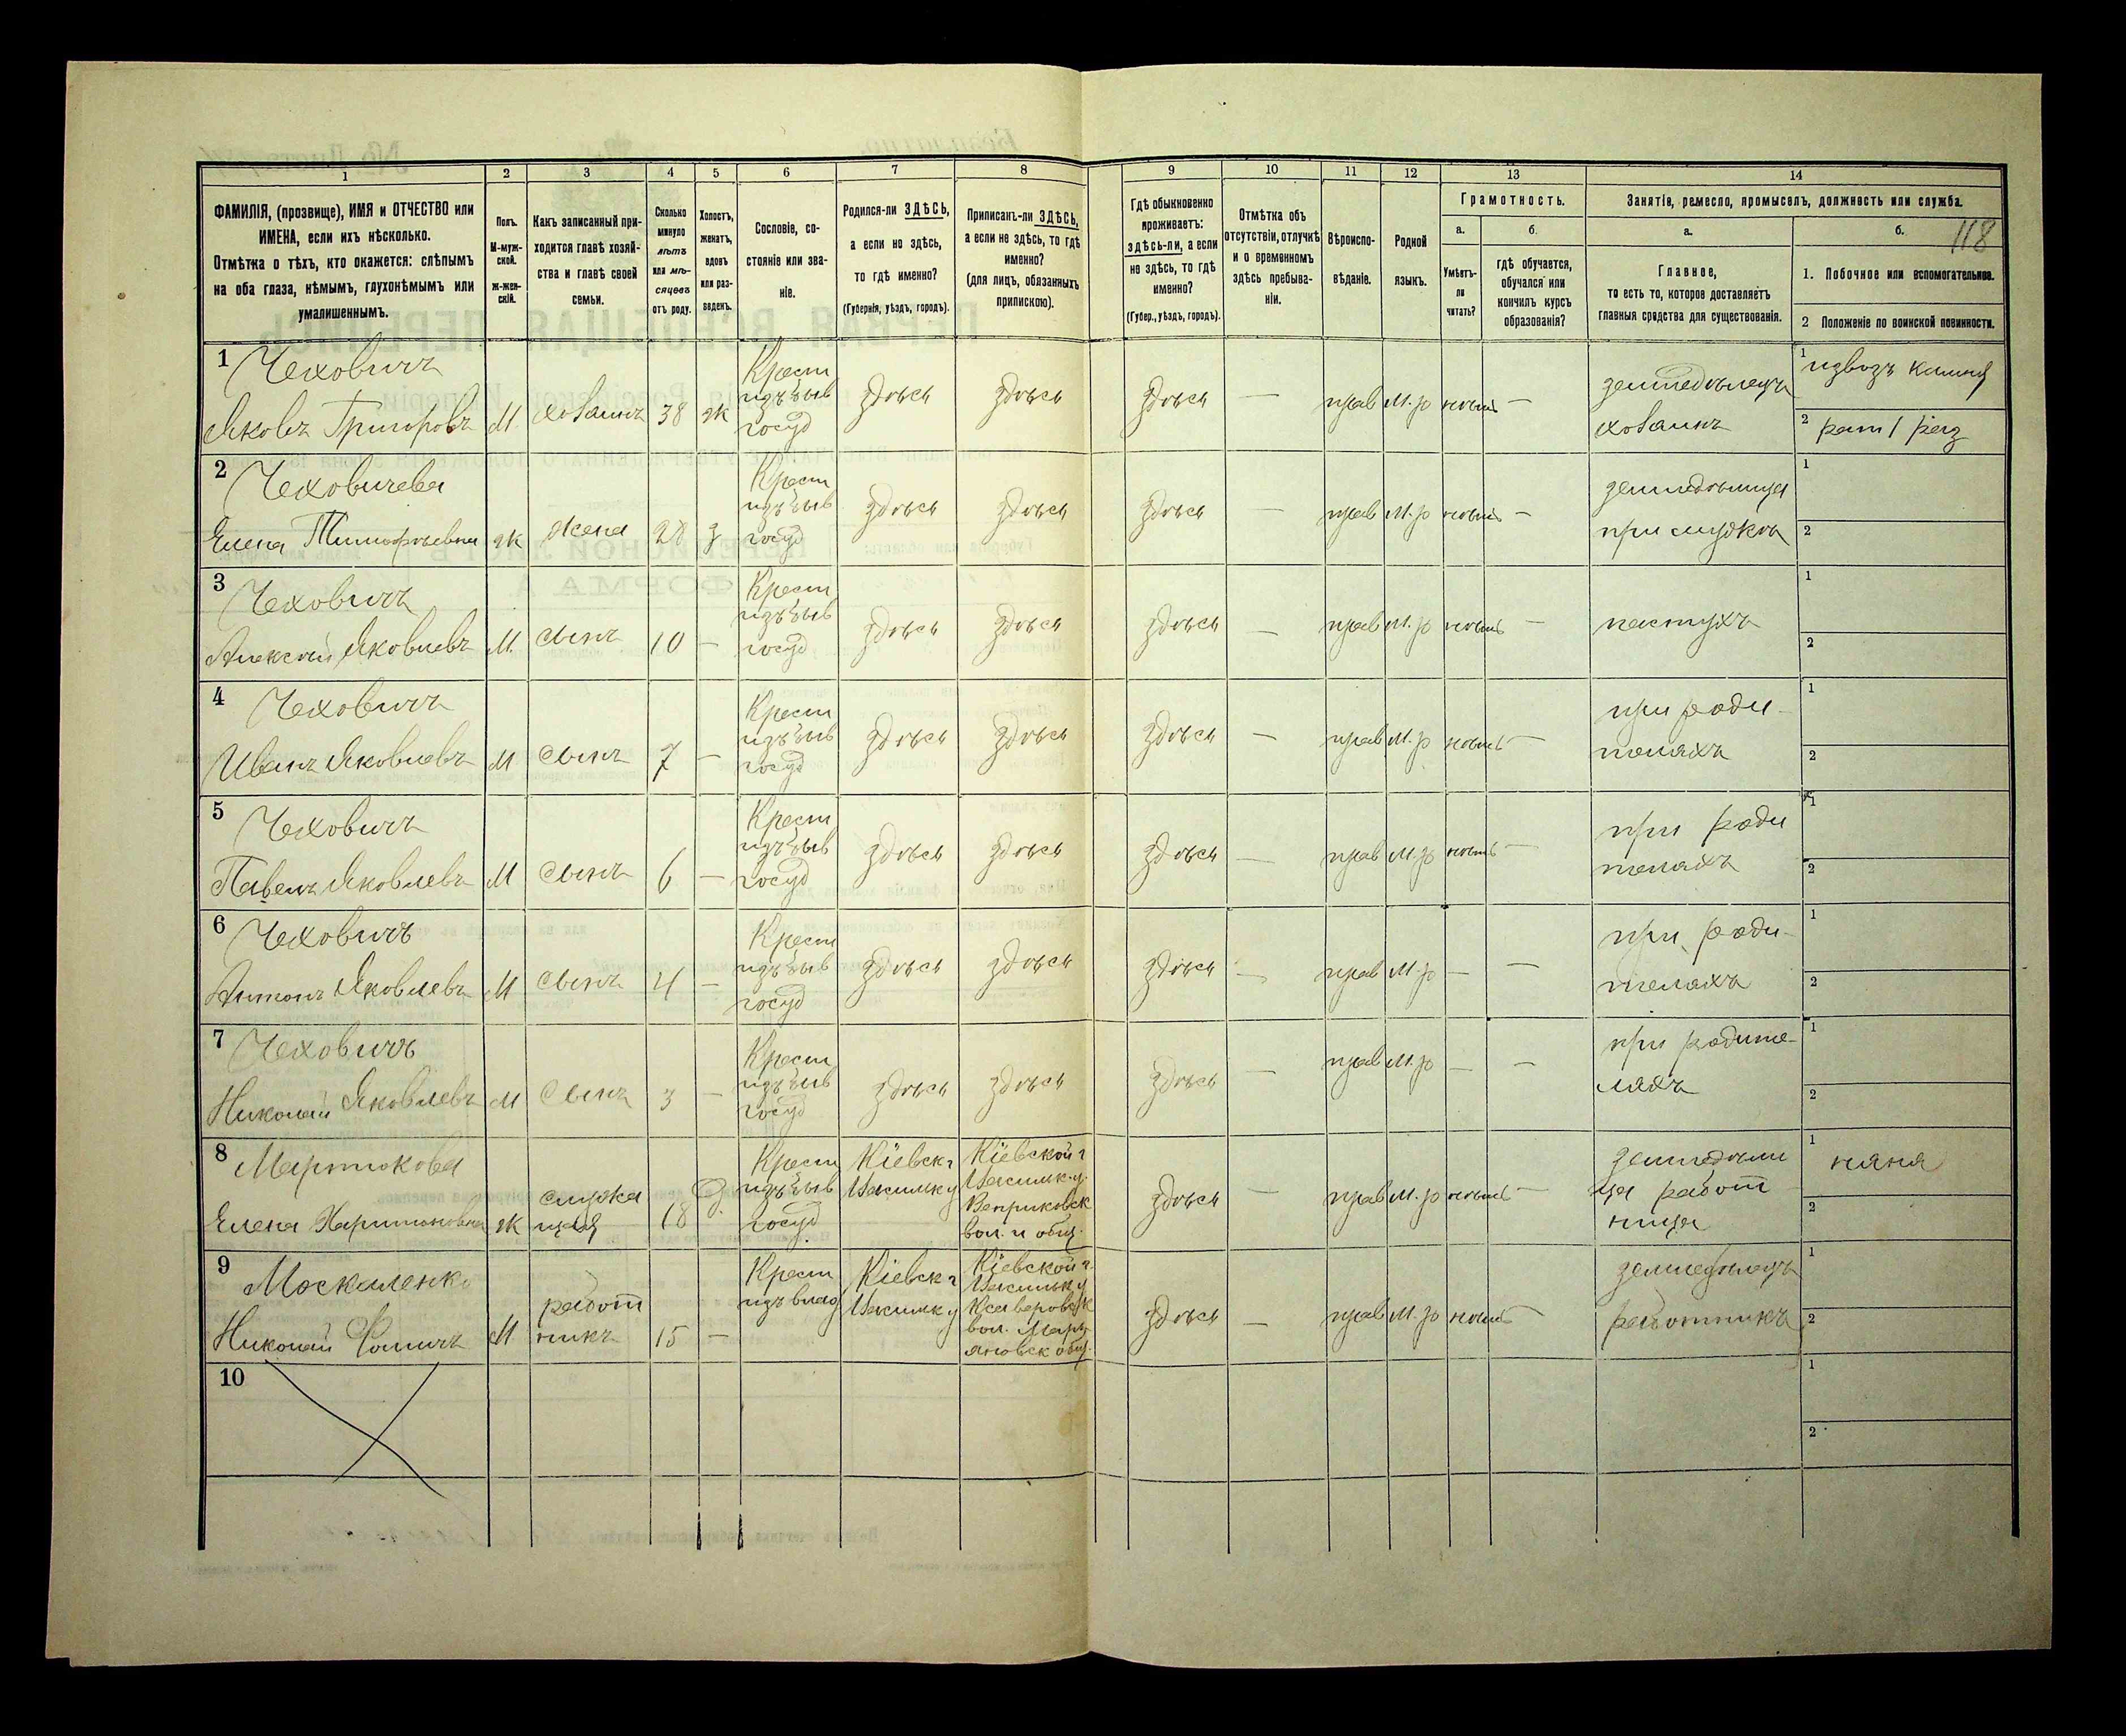 118
1 2 3 4 5 6 7 8 9 10 11 12 13 14
ФАМИЛІЯ, (прозвище), ИМЯ и ОТЧЕСТВО или
ИМЕНА, если ихъ нѣсколько.
Отмѣтка о тѣхъ, кто окажется: слѣпымъ
на оба глаза, нѣмымъ, глухонѣмымъ или
умалишеннымъ.
Полъ.
М-муж-
ской.
Ж-жен-
скій.
Какъ записанный при-
ходится главѣ хозяй-
ства и главѣ своей
семьи.
Сколько
минуло
лѣтъ
или мѣ-
сяцевъ
отъ роду.
Холостъ,
женатъ,
вдовъ
или раз-
веденъ.
Сословіе, со-
стояніе или зва-
ніе.
Родился-ли ЗДѢСЬ,
а если не здѣсь,
то гдѣ именно?
(Губернія, уѣздъ, городъ).
Приписанъ-ли ЗДѢСЬ,
а если не здѣсь, то гдѣ
именно?
(для лицъ, обязанныхъ
припискою).
Гдѣ обыкновенно
проживаетъ:
здѣсь-ли, а если
не здѣсь, то гдѣ
именно?
(Губер., уѣздъ, городъ).
Отмѣтка объ
отсутствіи, отлучкѣ
и о временномъ
здѣсь пребыва-
ніи.
Вѣроиспо-
вѣданіе.
Родной
языкъ.
Грамотность.
а.
Умѣетъ-
ли
читать?
б.
гдѣ обучается,
обучался или
кончилъ курсъ
образованія?
Занятіе, ремесло, промыселъ, должность или служба.
а.
Главное,
то есть то, которое доставляетъ
главныя средства для существованія.
б.
1. Побочное или вспомогательное.
2 Положеніе по воинской повинности.
1
Чеховичъ
Яковъ Григоровъ
М
хозаинъ
38
ж
Крест
изъ быв
госуд
здѣсь
здѣсь
здѣсь
—
прав
м.р
нѣтъ
—
земледѣлецъ
хозаинъ
1 извозъ камня
2 рат 1 раз
2
Чеховичева
Елена Тимофѣевна
ж
жена
28
з
Крест
изъ быв
госуд
здѣсь
здѣсь
здѣсь
—
прав
м.р
нѣтъ
—
земледѣлица
при мужѣ
1
2
3
Чеховичъ
Алексѣй Яковлевъ
М
сынъ
10
—
Крест
изъ быв
госуд
здѣсь
здѣсь
здѣсь
—
прав
м.р
нѣтъ
—
пастухъ
1
2
4
Чеховичъ
Иванъ Яковлевъ
М
сынъ
7
—
Крест
изъ быв
госуд
здѣсь
здѣсь
здѣсь
—
прав
м.р
нѣтъ
—
при роди-
телахъ
1
2
5
Чеховичъ
Павелъ Яковлевъ
М
сынъ
6
—
Крест
изъ быв
госуд
здѣсь
здѣсь
здѣсь
—
прав
м.р
нѣтъ
—
при роди
телахъ
1
2
6
Чеховичъ
Антонъ Яковлевъ
М
сынъ
4
—
Крест
изъ быв
госуд
здѣсь
здѣсь
здѣсь
—
прав
м.р
—
—
при роди-
телахъ
1
2
7
Чеховичъ
Николай Яковлевъ
М
сынъ
3
—
Крест
изъ быв
госуд
здѣсь
здѣсь
здѣсь
—
прав
м.р
—
—
при родите-
ляхъ
1
2
8
Мартюкова
Елена Харитоновна
ж
служа
щая
18
Крест
изъ быв
госуд
Кіевск г
Васильк у
Кіевской г
Васильк.у.
Веприковск
вол. и общ.
здѣсь
—
прав
м.р
нѣтъ
—
земледѣли
ца работ
ница
1 няня
2
9
Москаленко
Николай Фомичъ
М
работ
никъ
15
—
Крест
изъ влад
Кіевск г
Васильк у
Кіевской г.
Васильк у
Ксаверовск
вол. Марь
яновск общ.
здѣсь
—
прав
м.р
нѣтъ
—
земледѣлецъ
работникъ
1
2
10
1
2